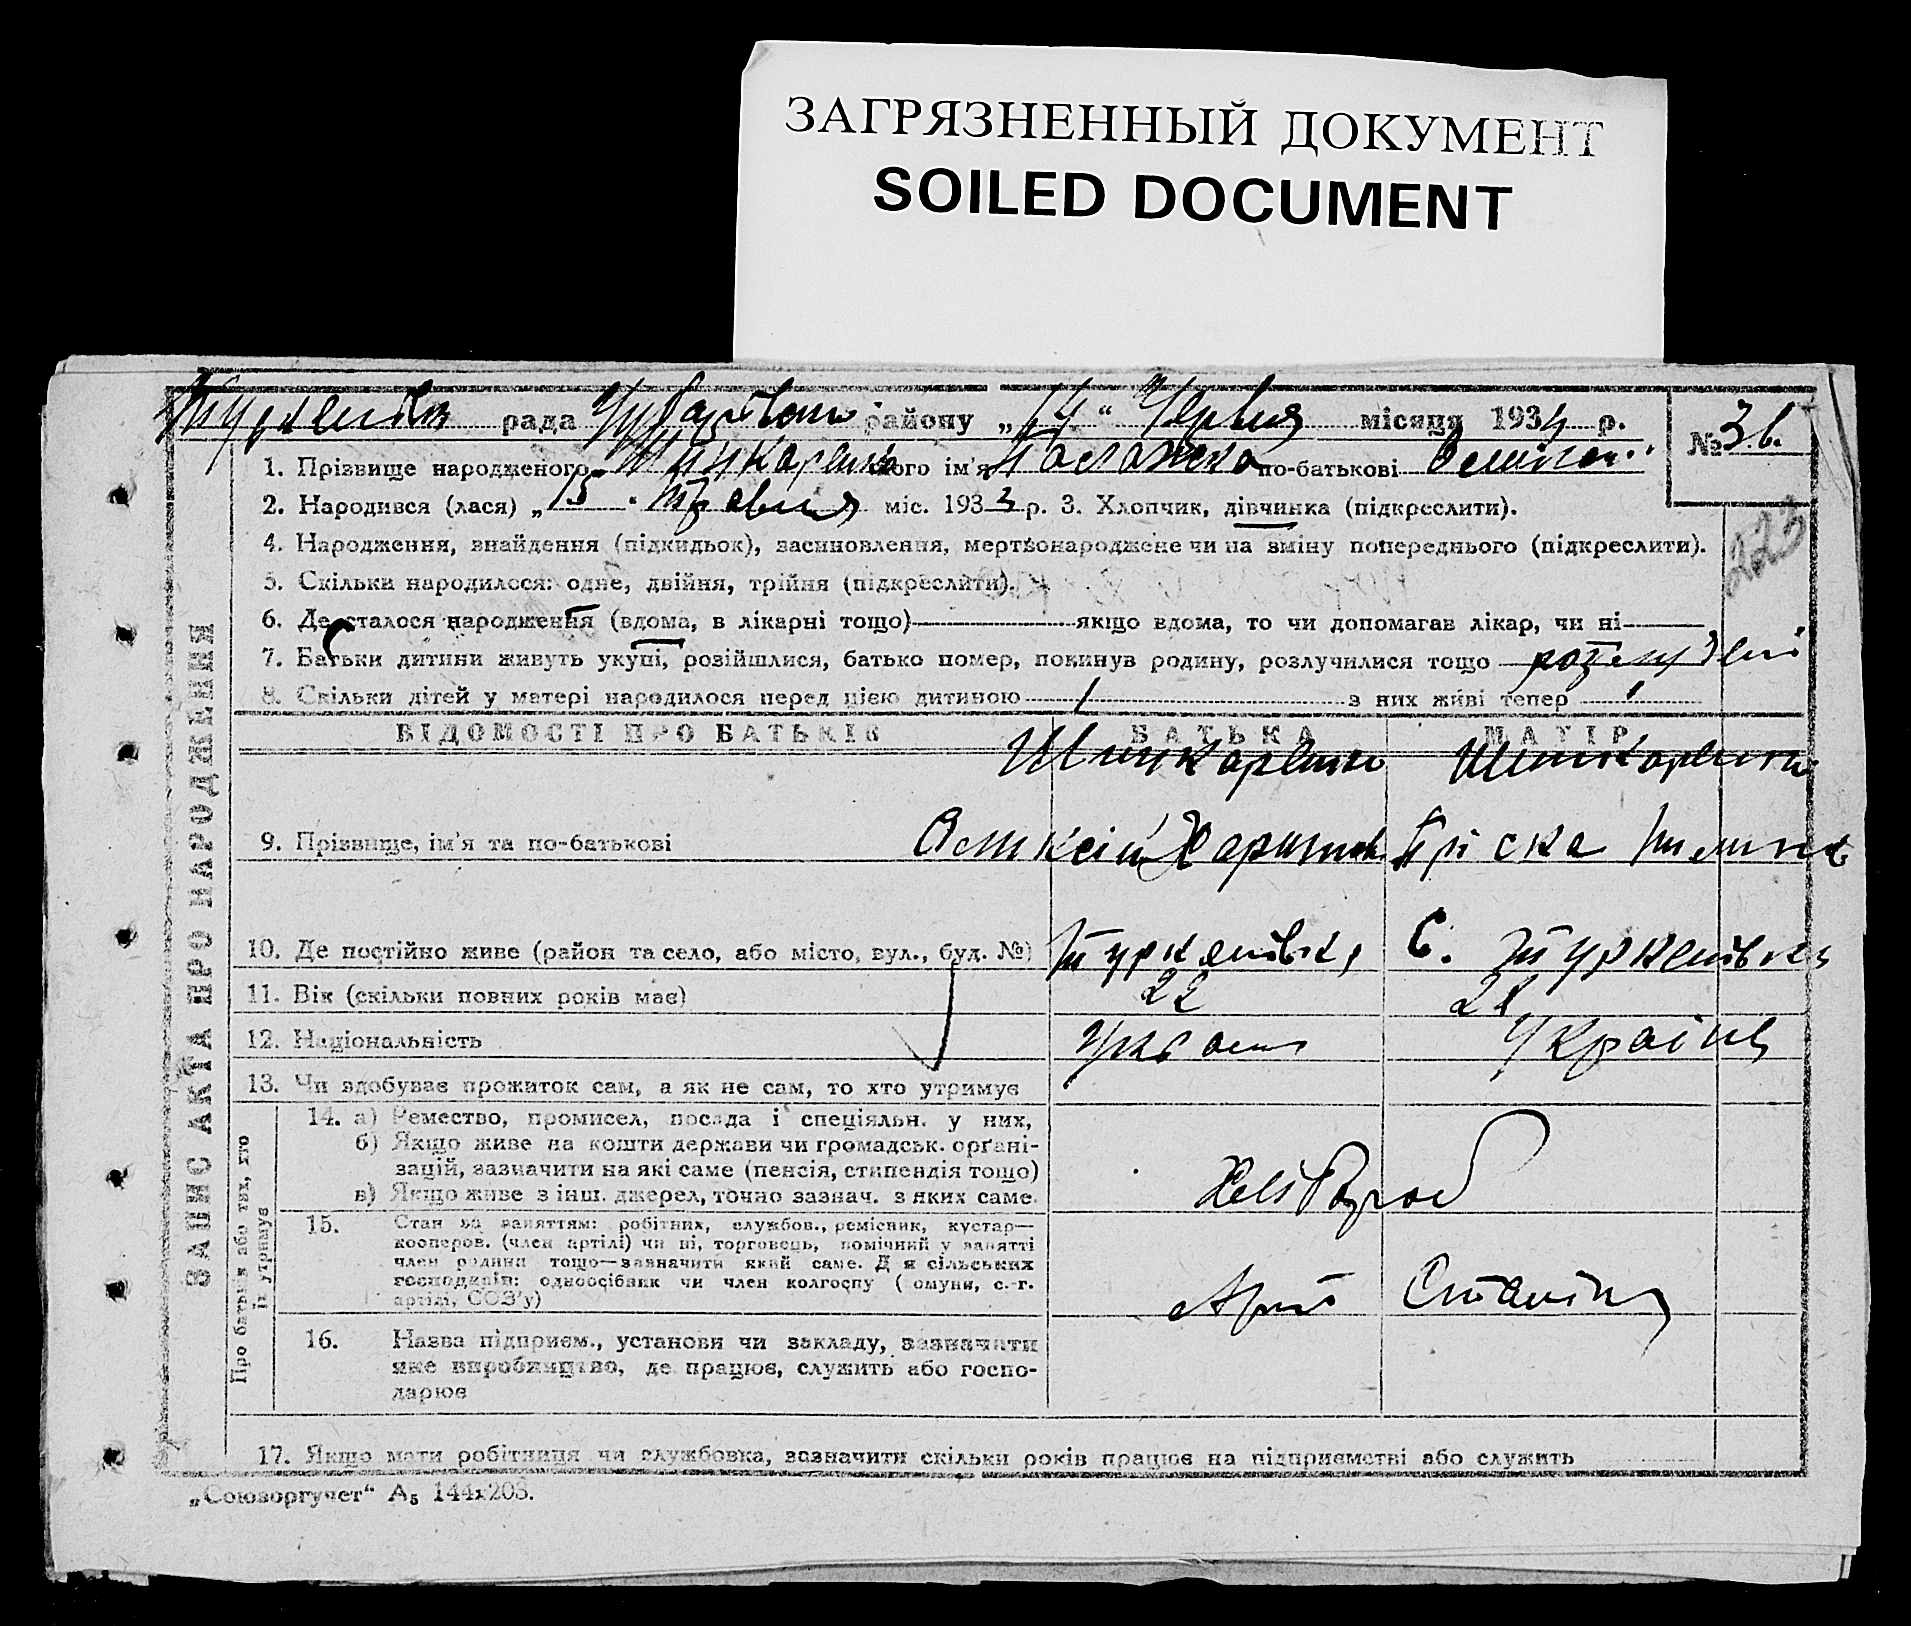 ЗАГРЯЗНЕННЫЙ ДОКУМЕНТ
SOILED DOCUMENT
рада району „14“ Червня місяця 1934 р.
№ 36.
1. Прізвище народженого його ім'я по-батькові
2. Народився (лася) „15 травня міс. 1933 р. 3. Хлопчик, дівчинка (підкреслити).
223
4. Народження, знайдення (підкидьок), засиновлення, мертвонароджене чи на зміну попереднього (підкреслити).
5. Скільки народилося: одне, двійня, трійня (підкреслити).
6. Де сталося народження (вдома, в лікарні тощо) якщо вдома, то чи допомагав лікар, чи ні
7. Батьки дитини живуть укупі, розійшлися, батько помер, покинув родину, розлучилися тощо
8. Скільки дітей у матері народилося перед цією дитиною 1 з них живі тепер 1
ЗАПИС АКТА ПРО НАРОДЖЕННЯ
ВІДОМОСТІ ПРО БАТЬКІВ БАТЬКА МАТІР
Шинкаренко Шинкаренко
9. Прізвище, ім'я та по-батькові Пріска
10. Де постійно живе (район та село, або місто, вул., буд. №) Туркенівка, С. Туркенівка
11. Вік (скільки повних років має) 22
12. Національність
13. Чи здобуває прожиток сам, а як не сам, то хто утримує
Про батьків або тих, хто їх утримує
14. а) Ремество, промисел, посада і спеціяльн. у них,
б) Якщо живе на кошти держави чи громадськ. органі-
зацій, зазначити на які саме (пенсія, стипендія тощо)
в) Якщо живе з інш. джерел, точно зазнач. з яких саме.
Хлібороб
15. Стан за заняттям: робітник, службов., ремісник, кустар—
кооперов. (член артілі) чи ні, торговець, помічний у занятті
член родини тощо—зазначити який саме. Д я сільських
господарів: одноосібник чи член колгоспу ( омуни, с.-г.
артілі, СОЗ'у)
Сталіна
16. Назва підприєм., установи чи закладу, зазначити
яке виробництво, де працює, служить або госпо-
дарює
17. Якщо мати робітниця чи службовка, зазначити скільки років працює на підприємстві або служить
„Союзоргучет“ А₅ 144х203.